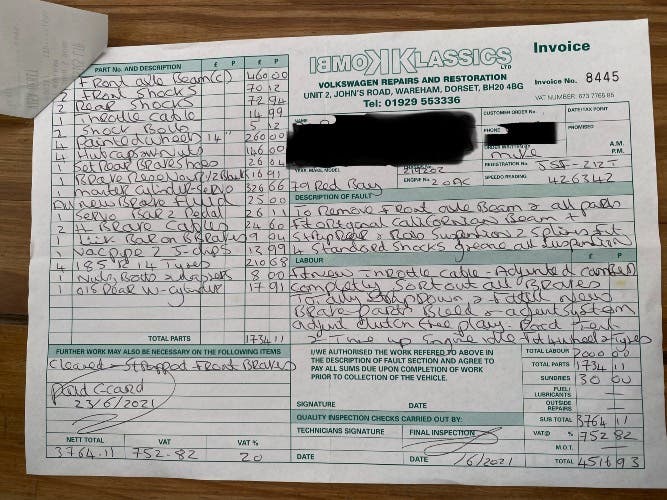 KOMBI KLASSICS LTD
Invoice
VOLKSWAGEN REPAIRS AND RESTORATION
UNIT 2, JOHN'S ROAD, WAREHAM, DORSET, BH20 4BG
Tel: 01929 553336
Invoice No. 8445
VAT NUMBER: 673 7765 85
PART No. AND DESCRIPTION £ P £ P
2 Front axle Beam(c) 460 00
2 Front Shocks 70 12
2 Rear Shocks 72 94
1 Throttle Cable 14 99
2 Shock Bolts 5 12
4 Painted wheels 14" 260 00
4 Hubcaps 146 00
1 Set Rear Brake Shoes 26 64
1 16 91
1 master cylinder - servo 326 66
All new Brake Fluid 25 00
1 Servo Pedal 26 11
2 H Brake Cables 24 60
1 Link Bar on Brakes 9 04
1 Vac pipe 2 12 99
4 185 R 14 Tyres 210 68
Nuts Bolts 8 00
1 O/S Rear W-cylinder 17 91
TOTAL PARTS 1734 11
NAME
CUSTOMER ORDER No.
DATE/TAX POINT
PHONE
PROMISED
ORDER WRITTEN BY
mike
A.M.
P.M.
YEAR, MAKE, MODEL
79 Red Bay
219202
ENGINE No. 20AC
REGISTRATION No. JSF-212T
SPEEDO READING 426342
DESCRIPTION OF FAULT
To Remove Front axle Beam & all parts
Fit original Californian Beam +
& Splines fit
Standard Shocks grease all suspention
LABOUR £ P
fit new Throttle Cable - Adjusted
completly Sort out all Brakes
Totally Strip Down & fit all new
Brake parts Bleed system
adjust clutch free play -
Tune up Engine idle - fit wheels + Tyres
FURTHER WORK MAY ALSO BE NECESSARY ON THE FOLLOWING ITEMS
Cleaned - Stripped Front Brakes
paid C-card
23/6/2021
I/WE AUTHORISED THE WORK REFERED TO ABOVE IN
THE DESCRIPTION OF FAULT SECTION AND AGREE TO
PAY ALL SUMS DUE UPON COMPLETION OF WORK
PRIOR TO COLLECTION OF THE VEHICLE.
SIGNATURE DATE
QUALITY INSPECTION CHECKS CARRIED OUT BY:
TECHNICIANS SIGNATURE FINAL INSPECTION
DATE DATE /6/2021
TOTAL LABOUR 2000 00
TOTAL PARTS 1734 11
SUNDRIES 30 00
FUEL/
LUBRICANTS
OUTSIDE
REPAIRS
SUB TOTAL 3764 11
VAT@ % 752 82
M.O.T.
TOTAL 4516 93
NETT TOTAL VAT VAT %
3764.11 752-82 20